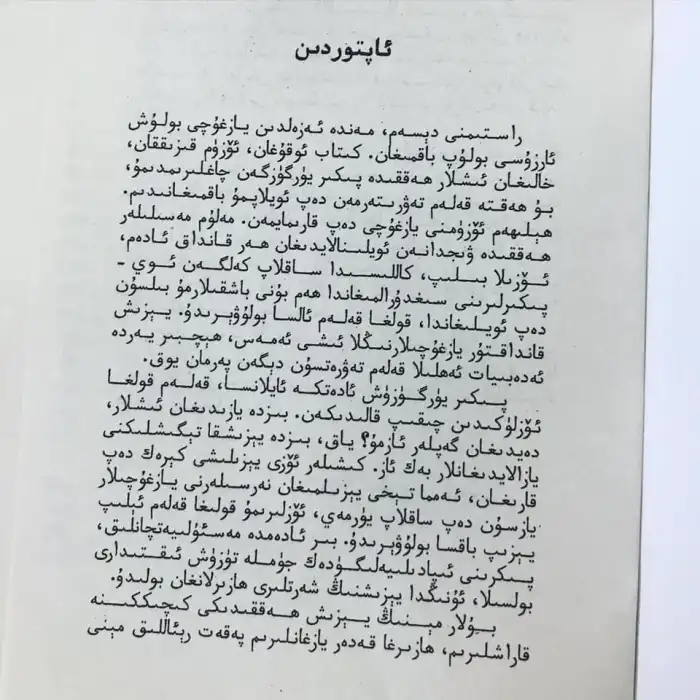 ئاپتوردىن
راستىمنى دېسەم، مەندە ئەزەلدىن يازغۇچى بولۇش
ئارزۇسى بولۇپ باقمىغان. كىتاب ئوقۇغان، ئۆزۈم قىزىققان،
خالىغان ئىشلار ھەققىدە پىكىر يۈرگۈزگەن چاغلىرىمدىمۇ،
بۇ ھەقتە قەلەم تەۋرىتەرمەن دەپ ئويلاپمۇ باقمىغانىدىم.
ھېلىھەم ئۆزۈمنى يازغۇچى دەپ قارىمايمەن. مەلۇم مەسىلىلەر
ھەققىدە ۋىجدانەن ئويلىنالايدىغان ھەر قانداق ئادەم،
ئۆزىلا بىلىپ، كاللىسىدا ساقلاپ كەلگەن ئوي -
پىكىرلىرىنى سىغدۇرالمىغاندا ھەم بۇنى باشقىلارمۇ بىلسۇن
دەپ ئويلىغاندا، قولغا قەلەم ئالسا بولۇۋېرىدۇ. يېزىش
قانداقتۇر يازغۇچىلارنىڭلا ئىشى ئەمەس، ھېچبىر يەردە
ئەدەبىيات ئەھلىلا قەلەم تەۋرەتسۇن دېگەن پەرمان يوق.
پىكىر يۈرگۈزۈش ئادەتكە ئايلانسا، قەلەم قولغا
ئۆزلۈكىدىن چىقىپ قالىدىكەن. بىزدە يازىدىغان ئىشلار،
دەيدىغان گەپلەر ئازمۇ؟ ياق، بىزدە يېزىشقا تېگىشلىكنى
يازالايدىغانلار بەك ئاز. كىشىلەر ئۆزى يېزىلىشى كېرەك دەپ
قارىغان، ئەمما تېخى يېزىلمىغان نەرسىلەرنى يازغۇچىلار
يازسۇن دەپ ساقلاپ يۈرمەي، ئۆزلىرىمۇ قولىغا قەلەم ئېلىپ
يېزىپ باقسا بولۇۋېرىدۇ. بىر ئادەمدە مەسئۇلىيەتچانلىق،
پىكىرنى ئىپادىلىيەلىگۈدەك جۈملە تۈزۈش ئىقتىدارى
بولسىلا، ئۇنىڭدا يېزىشنىڭ شەرتلىرى ھازىرلانغان بولىدۇ.
بۇلار مېنىڭ يېزىش ھەققىدىكى كىچىككىنە
قاراشلىرىم، ھازىرغا قەدەر يازغانلىرىم پەقەت رېئاللىق مېنى